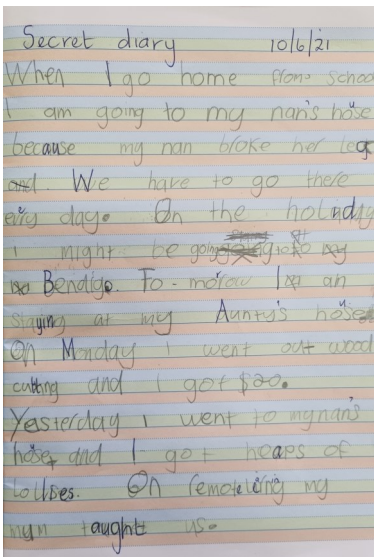 Secret diary 10/6/21
When I go home from school
I am going to my nan's house
because my nan broke her leg
and. We have to go there
evry day. On the holaday
I might be going to
Bendigo. To-morow I an
staying at my Aunty's house
On Monday I went out wood
cutting and I got $20.
Yesterday I went to my nan's
house and I got heaps of
lollises. On remotelering my
mum taught us.